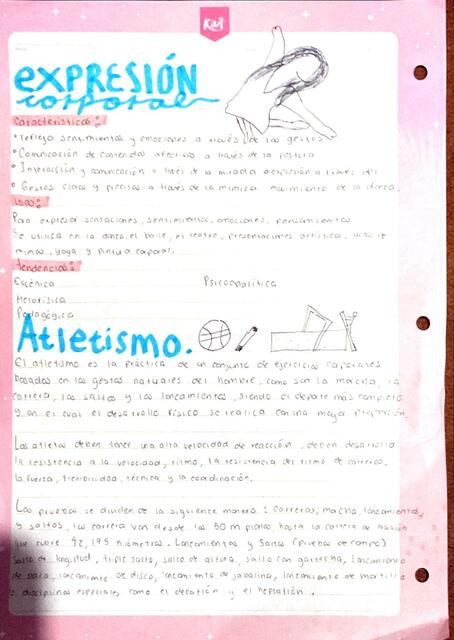 Kiut
EXPRESIÓN
corporal
Características:
• Refleja sentimientos y emociones a través de los gestos
• Comunicación de contenidos afectivos a través de la postura
• Interacción y comunicación a través de la mirada
• Gestos claros y precisos a través de la mímica movimiento de la danza.
Usos:
Para expresar sensaciones, sentimientos, emociones, pensamientos
Se utiliza en la danza, el baile, el teatro, presentaciones artísticas, actos de
mimos, yoga y pintura corporal.
Tendencias:
Escénica Psicoanalítica
Metafísica
Pedagógica
Atletismo.
El atletismo es la práctica de un conjunto de ejercicios corporales
basados en los gestos naturales del hombre, como son la marcha, la
carrera, los saltos y los lanzamientos, siendo el deporte más completo
y en el cual el desarrollo físico se realiza con una mayor proporción.
Los atletas deben tener una alta velocidad de reacción, deben desarrollar
la resistencia a la velocidad, ritmo, la resistencia del ritmo de carreras,
la fuerza, flexibilidad, técnica y la coordinación.
Las pruebas se dividen de la siguiente manera: carreras, marcha, lanzamientos
y saltos, las carreras van desde los 50 m planos hasta la carrera de
que cubre 42,195 kilómetros. Lanzamientos y Saltos (Pruebas de campo)
Salto de longitud, triple salto, salto de altura, salto con garrocha, lanzamiento
de bala, lanzamiento de disco, lanzamiento de jabalina, lanzamiento de martillo
disciplinas especiales como el decatlón y el heptatlón.